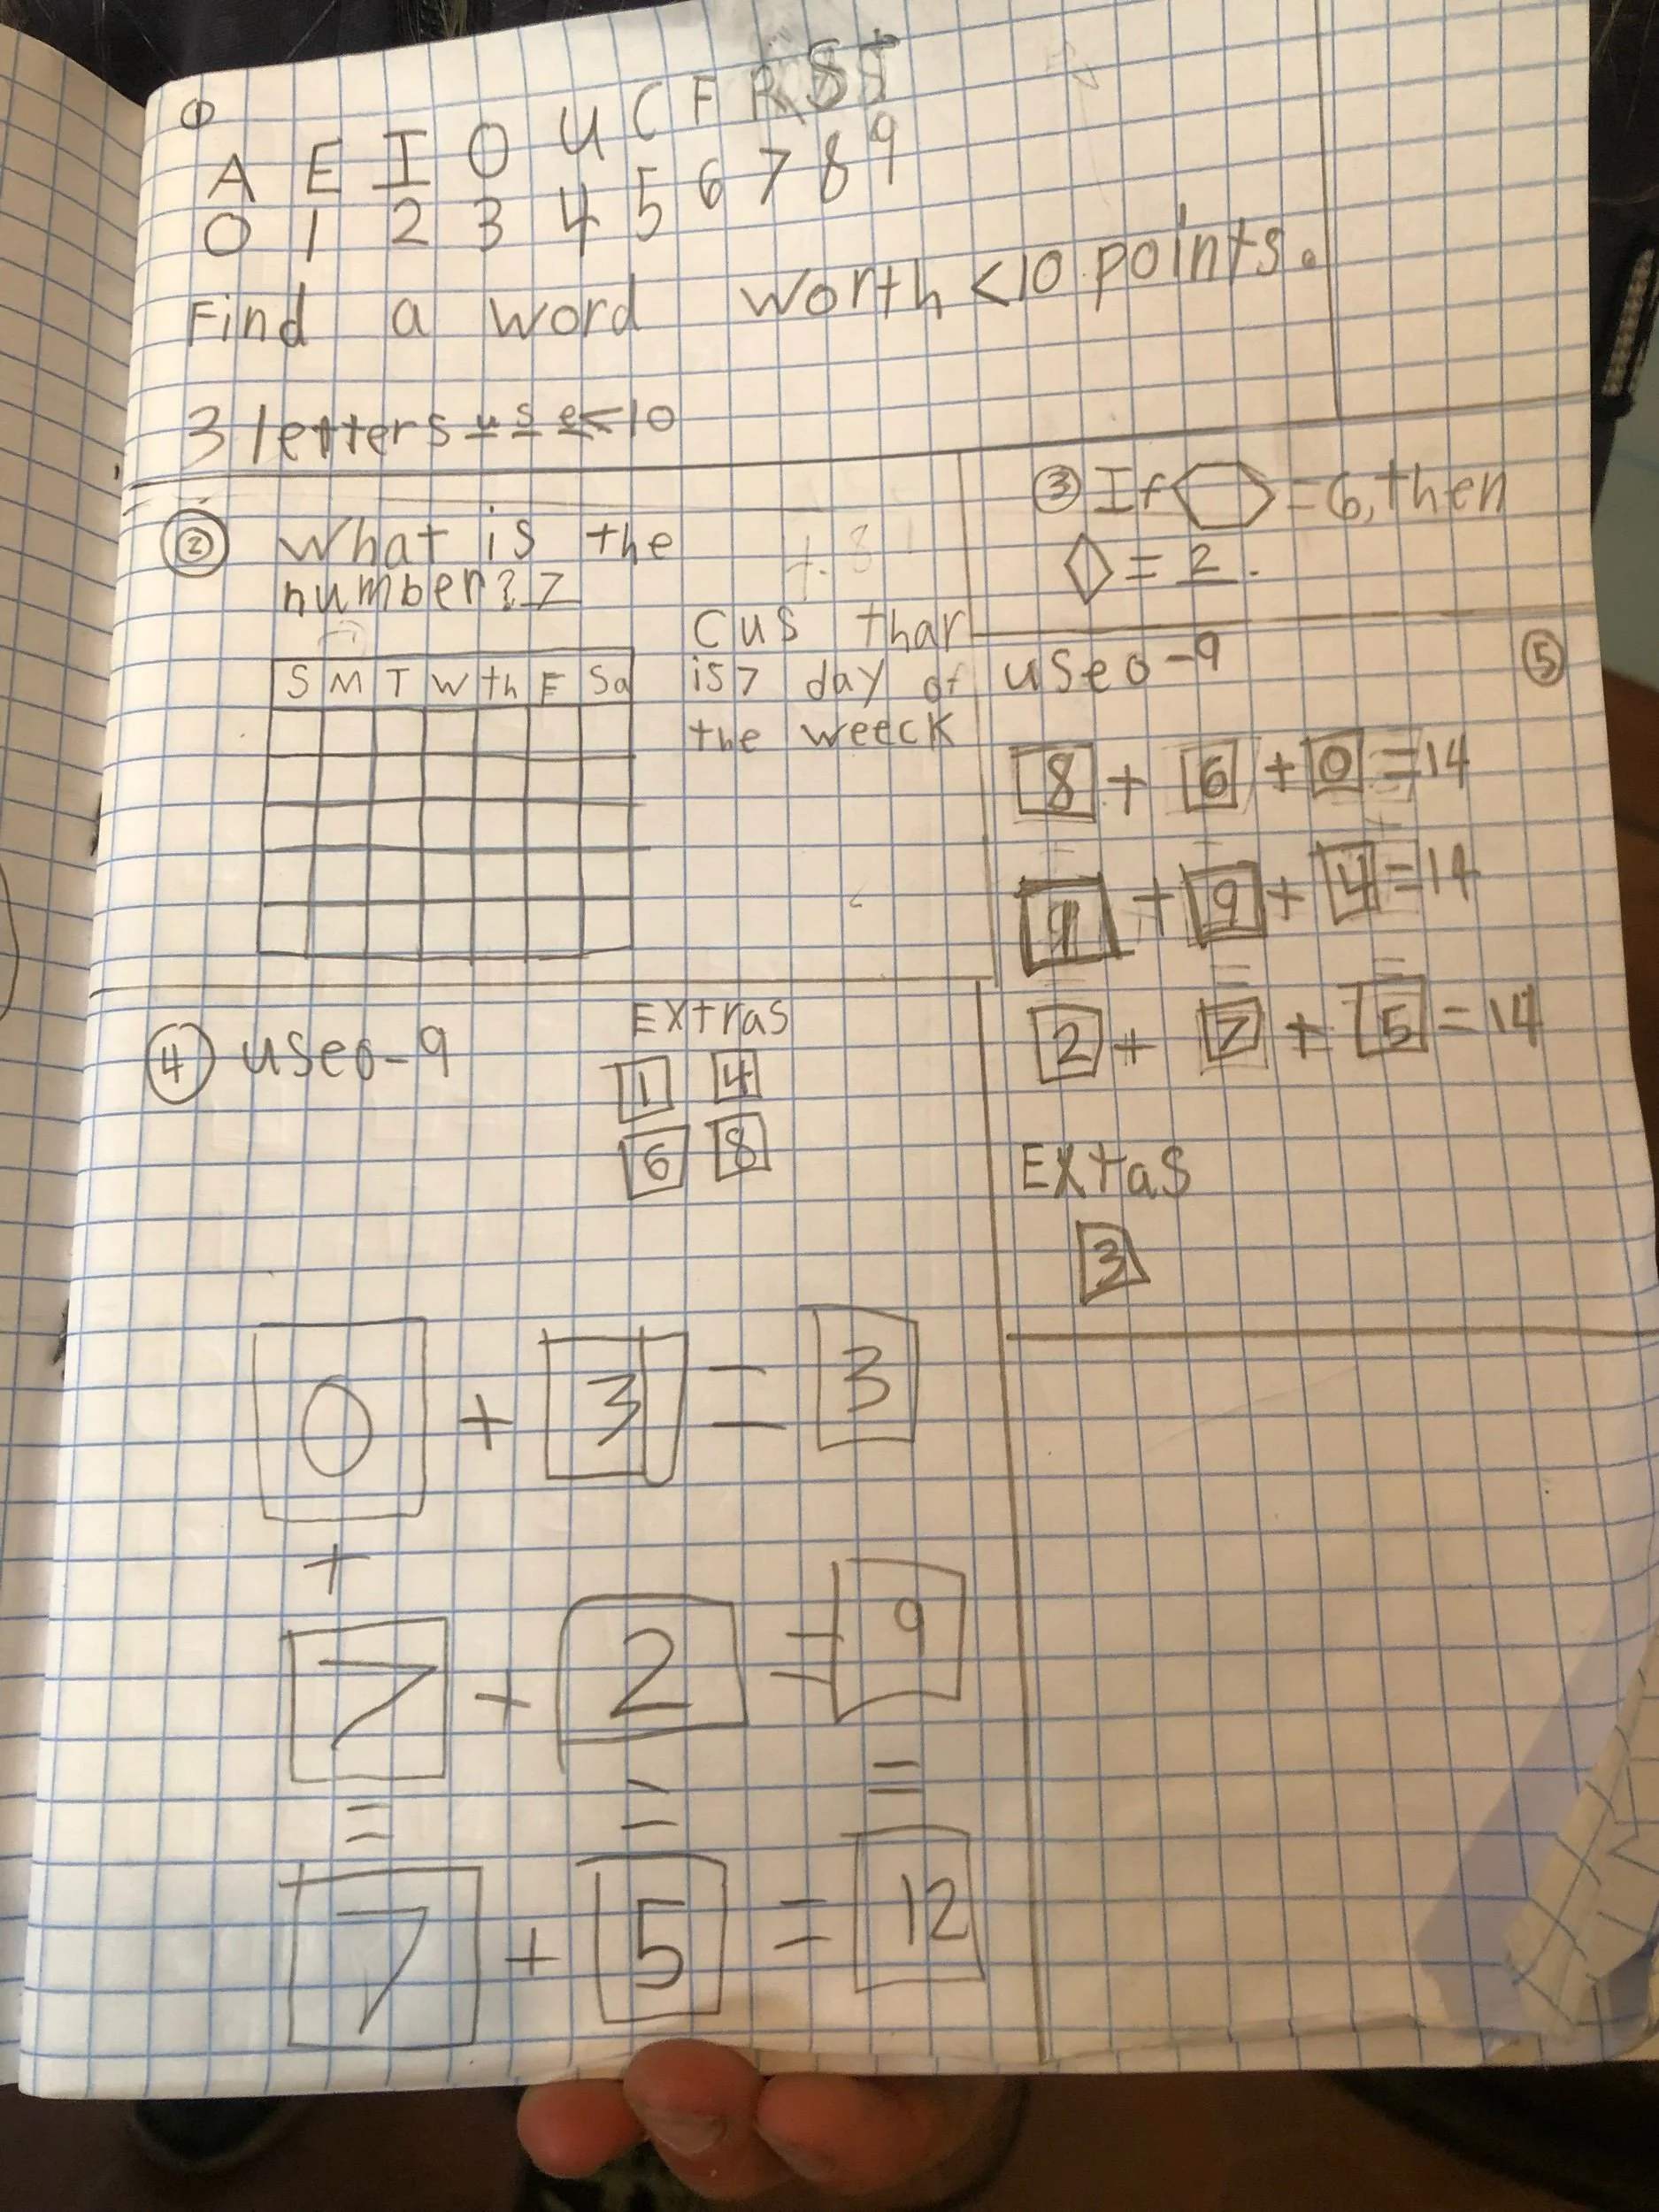 ①
A E I O U C F R S T
0 1 2 3 4 5 6 7 8 9
Find a word worth <10 points.
3 letters u s e <10
② What is the
number? 7
S M T W th F Sa
cus thar
is 7 day of
the weeck
③ If = 6, then
= 2.
④ use 0-9
Extras
1 4
6 8
0 + 3 = 3
+
7 + 2 = 9
= = =
7 + 5 = 12
use 0-9 ⑤
8 + 6 + 0 = 14
+ 9 + 4 = 14
= =
2 + 7 + 5 = 14
Extas
3